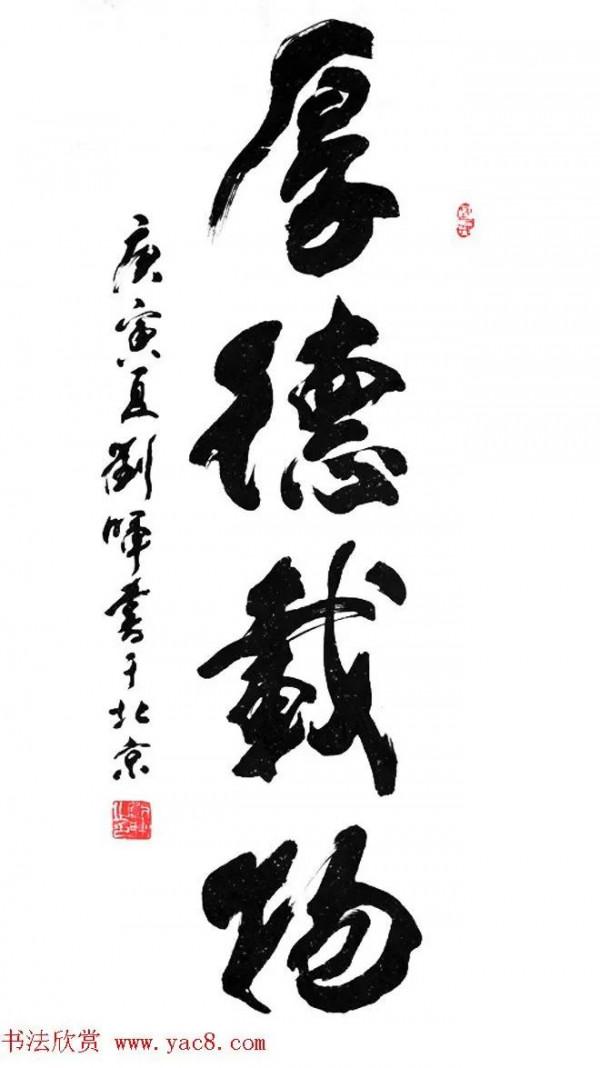 厚德載物
庚寅夏劉暉書于北京
书法欣赏 www.yac8.com